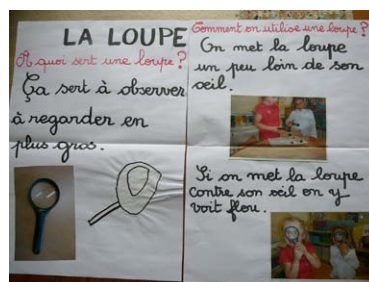 LA LOUPE
A quoi sert une loupe?
Ça sert à observer
à regarder en
plus gros.
Comment on utilise une loupe?
On met la loupe
un peu loin de son
oeil.
Si on met la loupe
contre son oeil on y
voit flou.